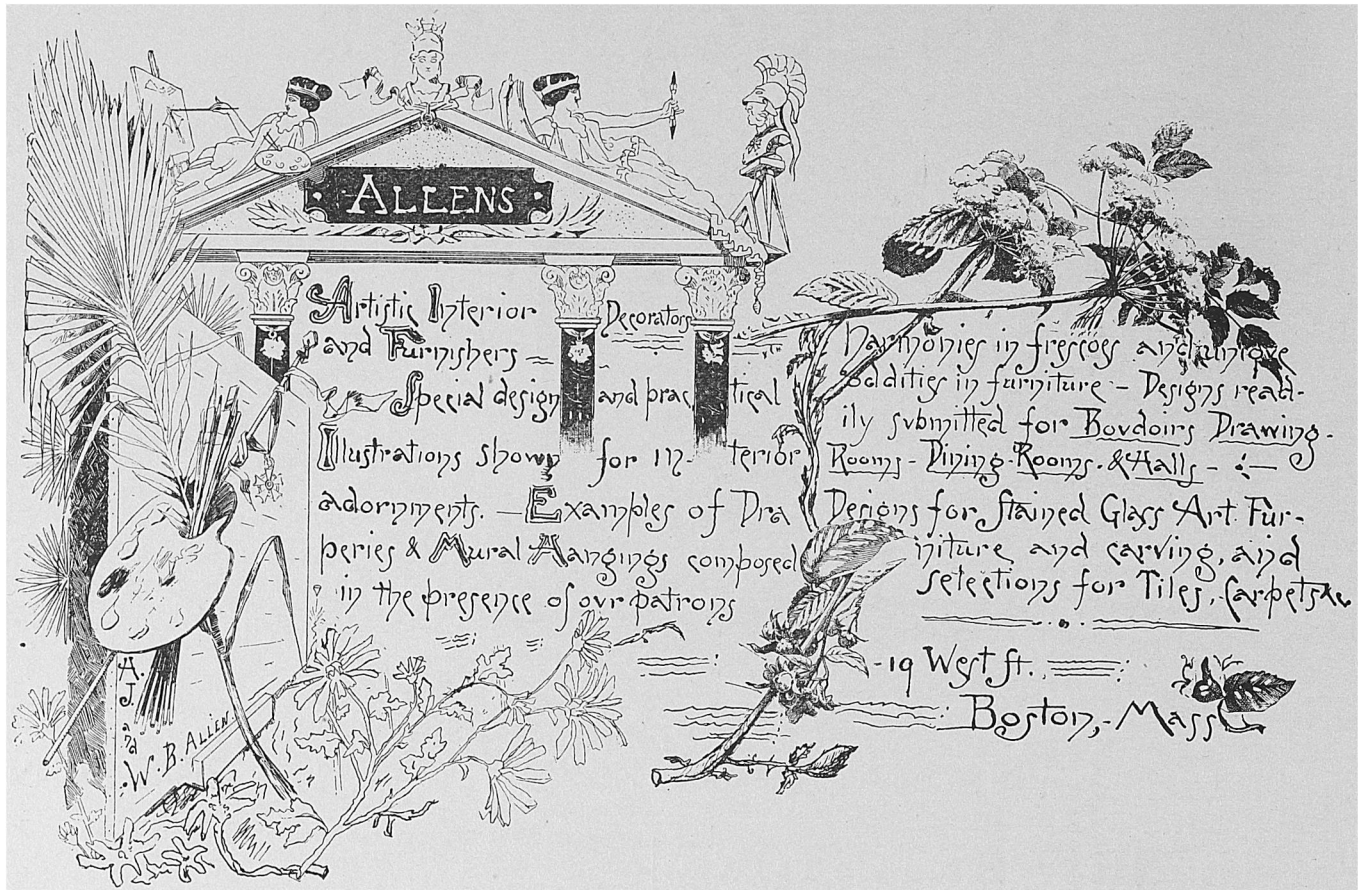 ALLENS
Artistic Interior Decorators
and Furnishers
Special design and practical
Illustrations shown for In-terior
adornments. — Examples of Dra
peries & Mural Hangings composed
in the presence of our patrons
Harmonies in frescoes and unique
oddities in furniture - Designs read-
ily submitted for Boudoirs Drawing-
Rooms - Dining-Rooms. & Halls -
Designs for Stained Glass Art Fur-
niture and carving, and
selections for Tiles, Carpets &c
- 19 West St.
Boston, - Mass
A.
J.
and
W. B. ALLEN